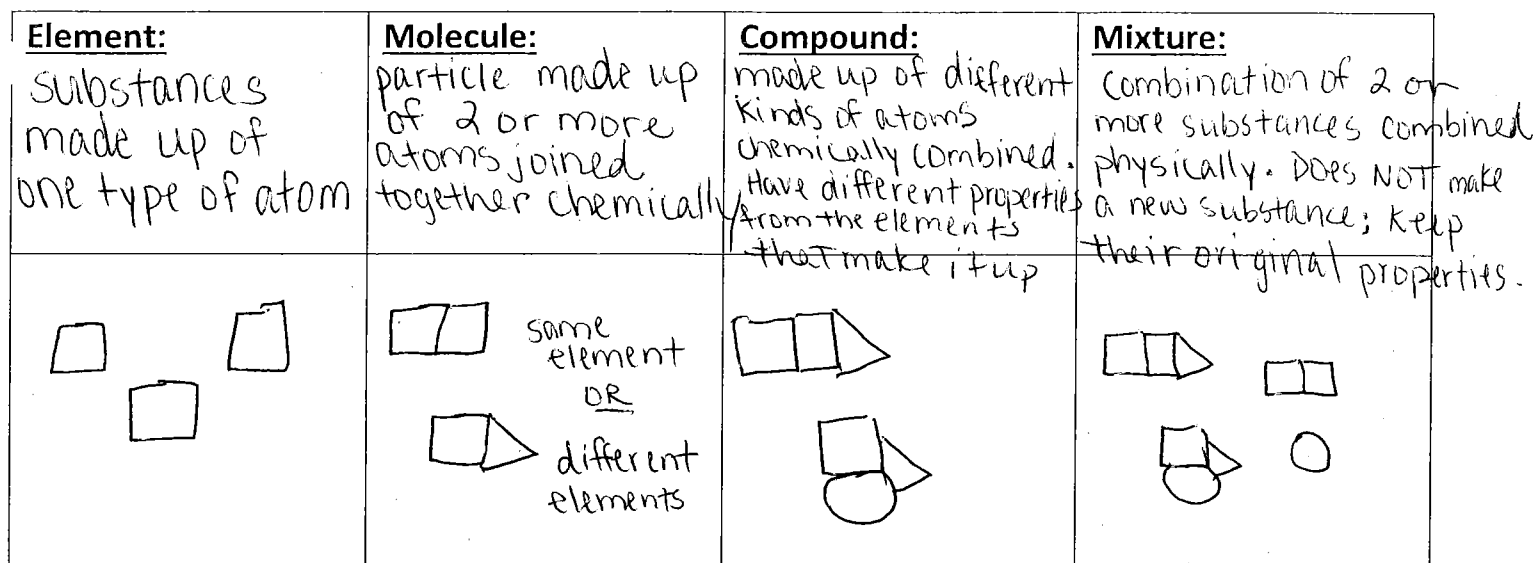 Element:
substances
made up of
one type of atom
Molecule:
particle made up
of 2 or more
atoms joined
together chemically
Compound:
made up of different
kinds of atoms
chemically combined.
Have different properties
from the elements
that make it up
Mixture:
combination of 2 or
more substances combined
physically. Does NOT make
a new substance; keep
their original properties.
same
element
OR
different
elements